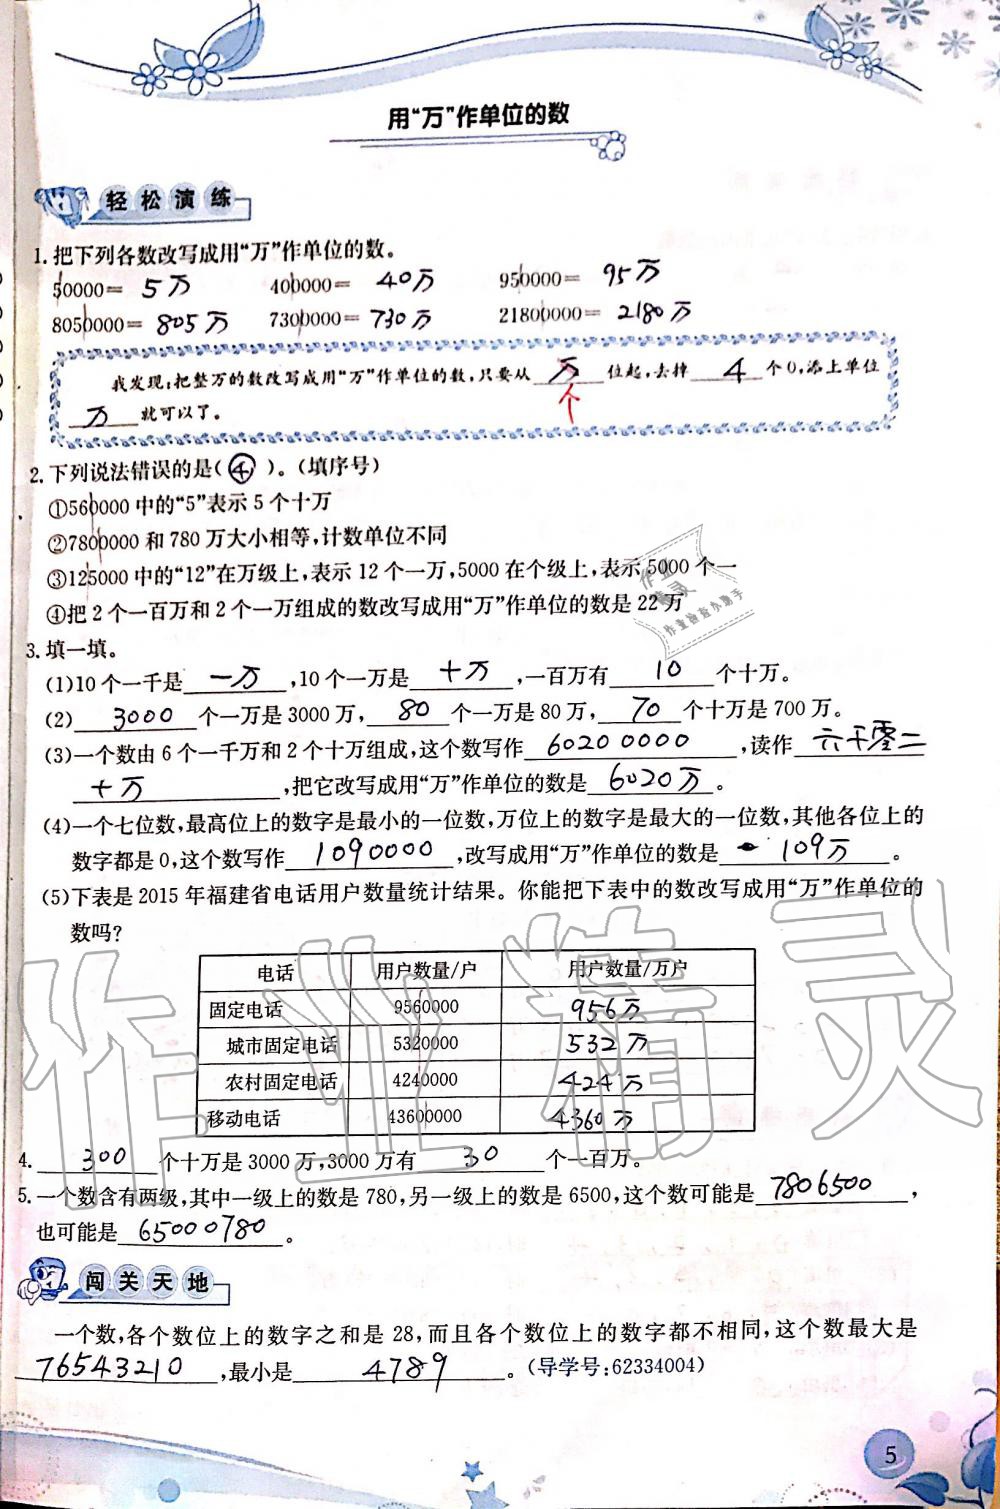 用“万”作单位的数
轻松演练
1.把下列各数改写成用“万”作单位的数。
50000= 5万 400000= 40万 950000= 95万
8050000= 805万 7300000= 730万 21800000= 2180万
我发现:把整万的数改写成用“万”作单位的数,只要从 万 位起,去掉 4 个0,添上单位
个
万 就可以了。
2.下列说法错误的是( ④ )。(填序号)
①560000中的“5”表示5个十万
②7800000和780万大小相等,计数单位不同
③125000中的“12”在万级上,表示12个一万,5000在个级上,表示5000个一
④把2个一百万和2个一万组成的数改写成用“万”作单位的数是22万
3.填一填。
(1)10个一千是 一万 ,10个一万是 十万 ,一百万有 10 个十万。
(2) 3000 个一万是3000万, 80 个一万是80万, 70 个十万是700万。
(3)一个数由6个一千万和2个十万组成,这个数写作 60200000 ,读作 六千零二
十万 ,把它改写成用“万”作单位的数是 6020万 。
(4)一个七位数,最高位上的数字是最小的一位数,万位上的数字是最大的一位数,其他各位上的
数字都是0,这个数写作 1090000 ,改写成用“万”作单位的数是 109万 。
(5)下表是2015年福建省电话用户数量统计结果。你能把下表中的数改写成用“万”作单位的
数吗?
电话 用户数量/户 用户数量/万户
固定电话 9560000 956万
城市固定电话 5320000 532万
农村固定电话 4240000 424万
移动电话 43600000 4360万
4. 300 个十万是3000万,3000万有 30 个一百万。
5.一个数含有两级,其中一级上的数是780,另一级上的数是6500,这个数可能是 7806500 ,
也可能是 65000780 。
闯关天地
一个数,各个数位上的数字之和是28,而且各个数位上的数字都不相同,这个数最大是
76543210 ,最小是 4789 。(导学号:62334004)
5
作业精灵
作业精灵
作业检查小助手